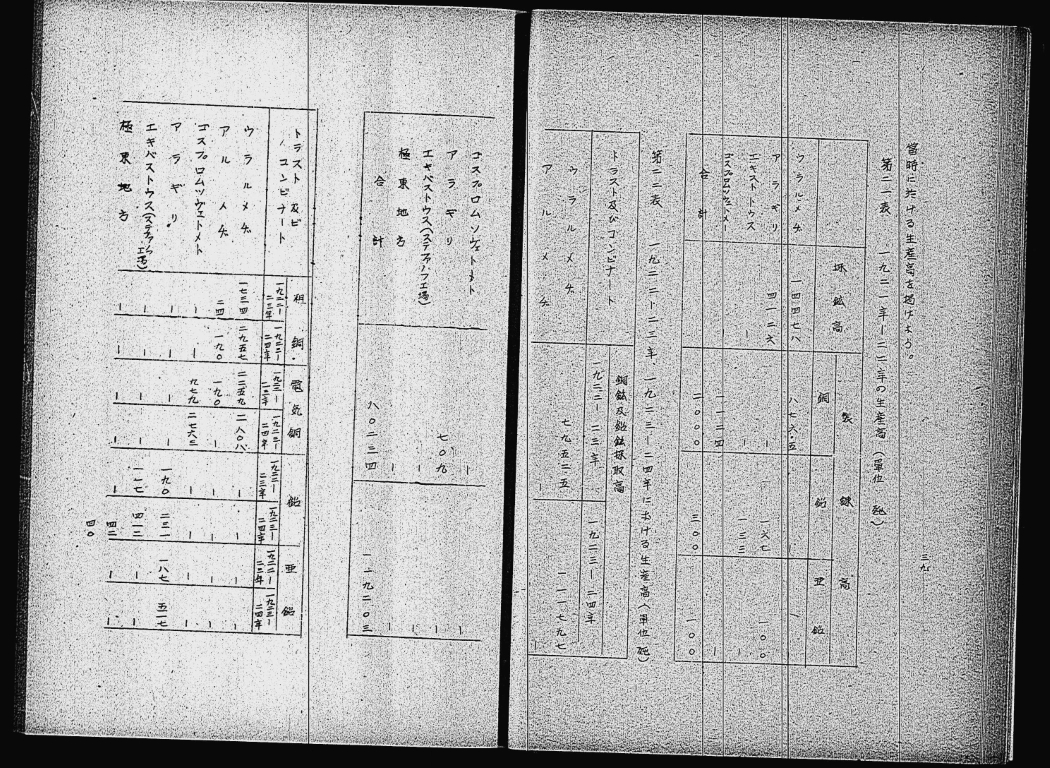 當時に於ける生産高を掲げよう。
第二一表 一九二一年—二二年の生産高（單位 瓲）
採鑛高
製錬高
銅
鉛
亜鉛
ウラルメヂ 一四四七八 八七六・五
アラギリ 四一二六 一六七 一〇〇
エキストウス — — 一三三 —
コスプロムツヴェトメト — 一一二四 —
合計 二〇〇〇 三〇〇 一〇〇
第二二表 一九二二—二三年、一九二三—二四年に於ける生産高（單位 瓲）
トラスト及びコンビナート
銅鑛及鉛鑛採取高
一九二二—二三年 一九二三—二四年
ウラルメヂ 七九五二五 一一一七九七
アルメヂ — —
三九
コスプロムツヴェトメト — —
アラギリ 七〇九 —
エキバストウス（ステファノフ工場） — —
極東地方 — —
合計 八〇二三四 一一九二〇三
トラスト及ビコンビナート
粗銅
電気銅
鉛
亜鉛
一九二二—二三年 一九二三—二四年 一九二二—二三年 一九二三—二四年 一九二二—二三年 一九二三—二四年 一九二二—二三年 一九二三—二四年
ウラルメヂ 一七三四 二九五七 二二五九 二八〇八 — — — —
アルメヂ 二四 一九〇 一九〇 — — — —
コスプロムツヴェトメト — — 九七九 二七六三 — — — —
アラギリ — — — — 一九〇 二三一 一八七 五一七
エキバストウス（ステファノフ工場） — — — — 一一七 四一二 — —
極東地方 — — — — — 四二 — —
四〇